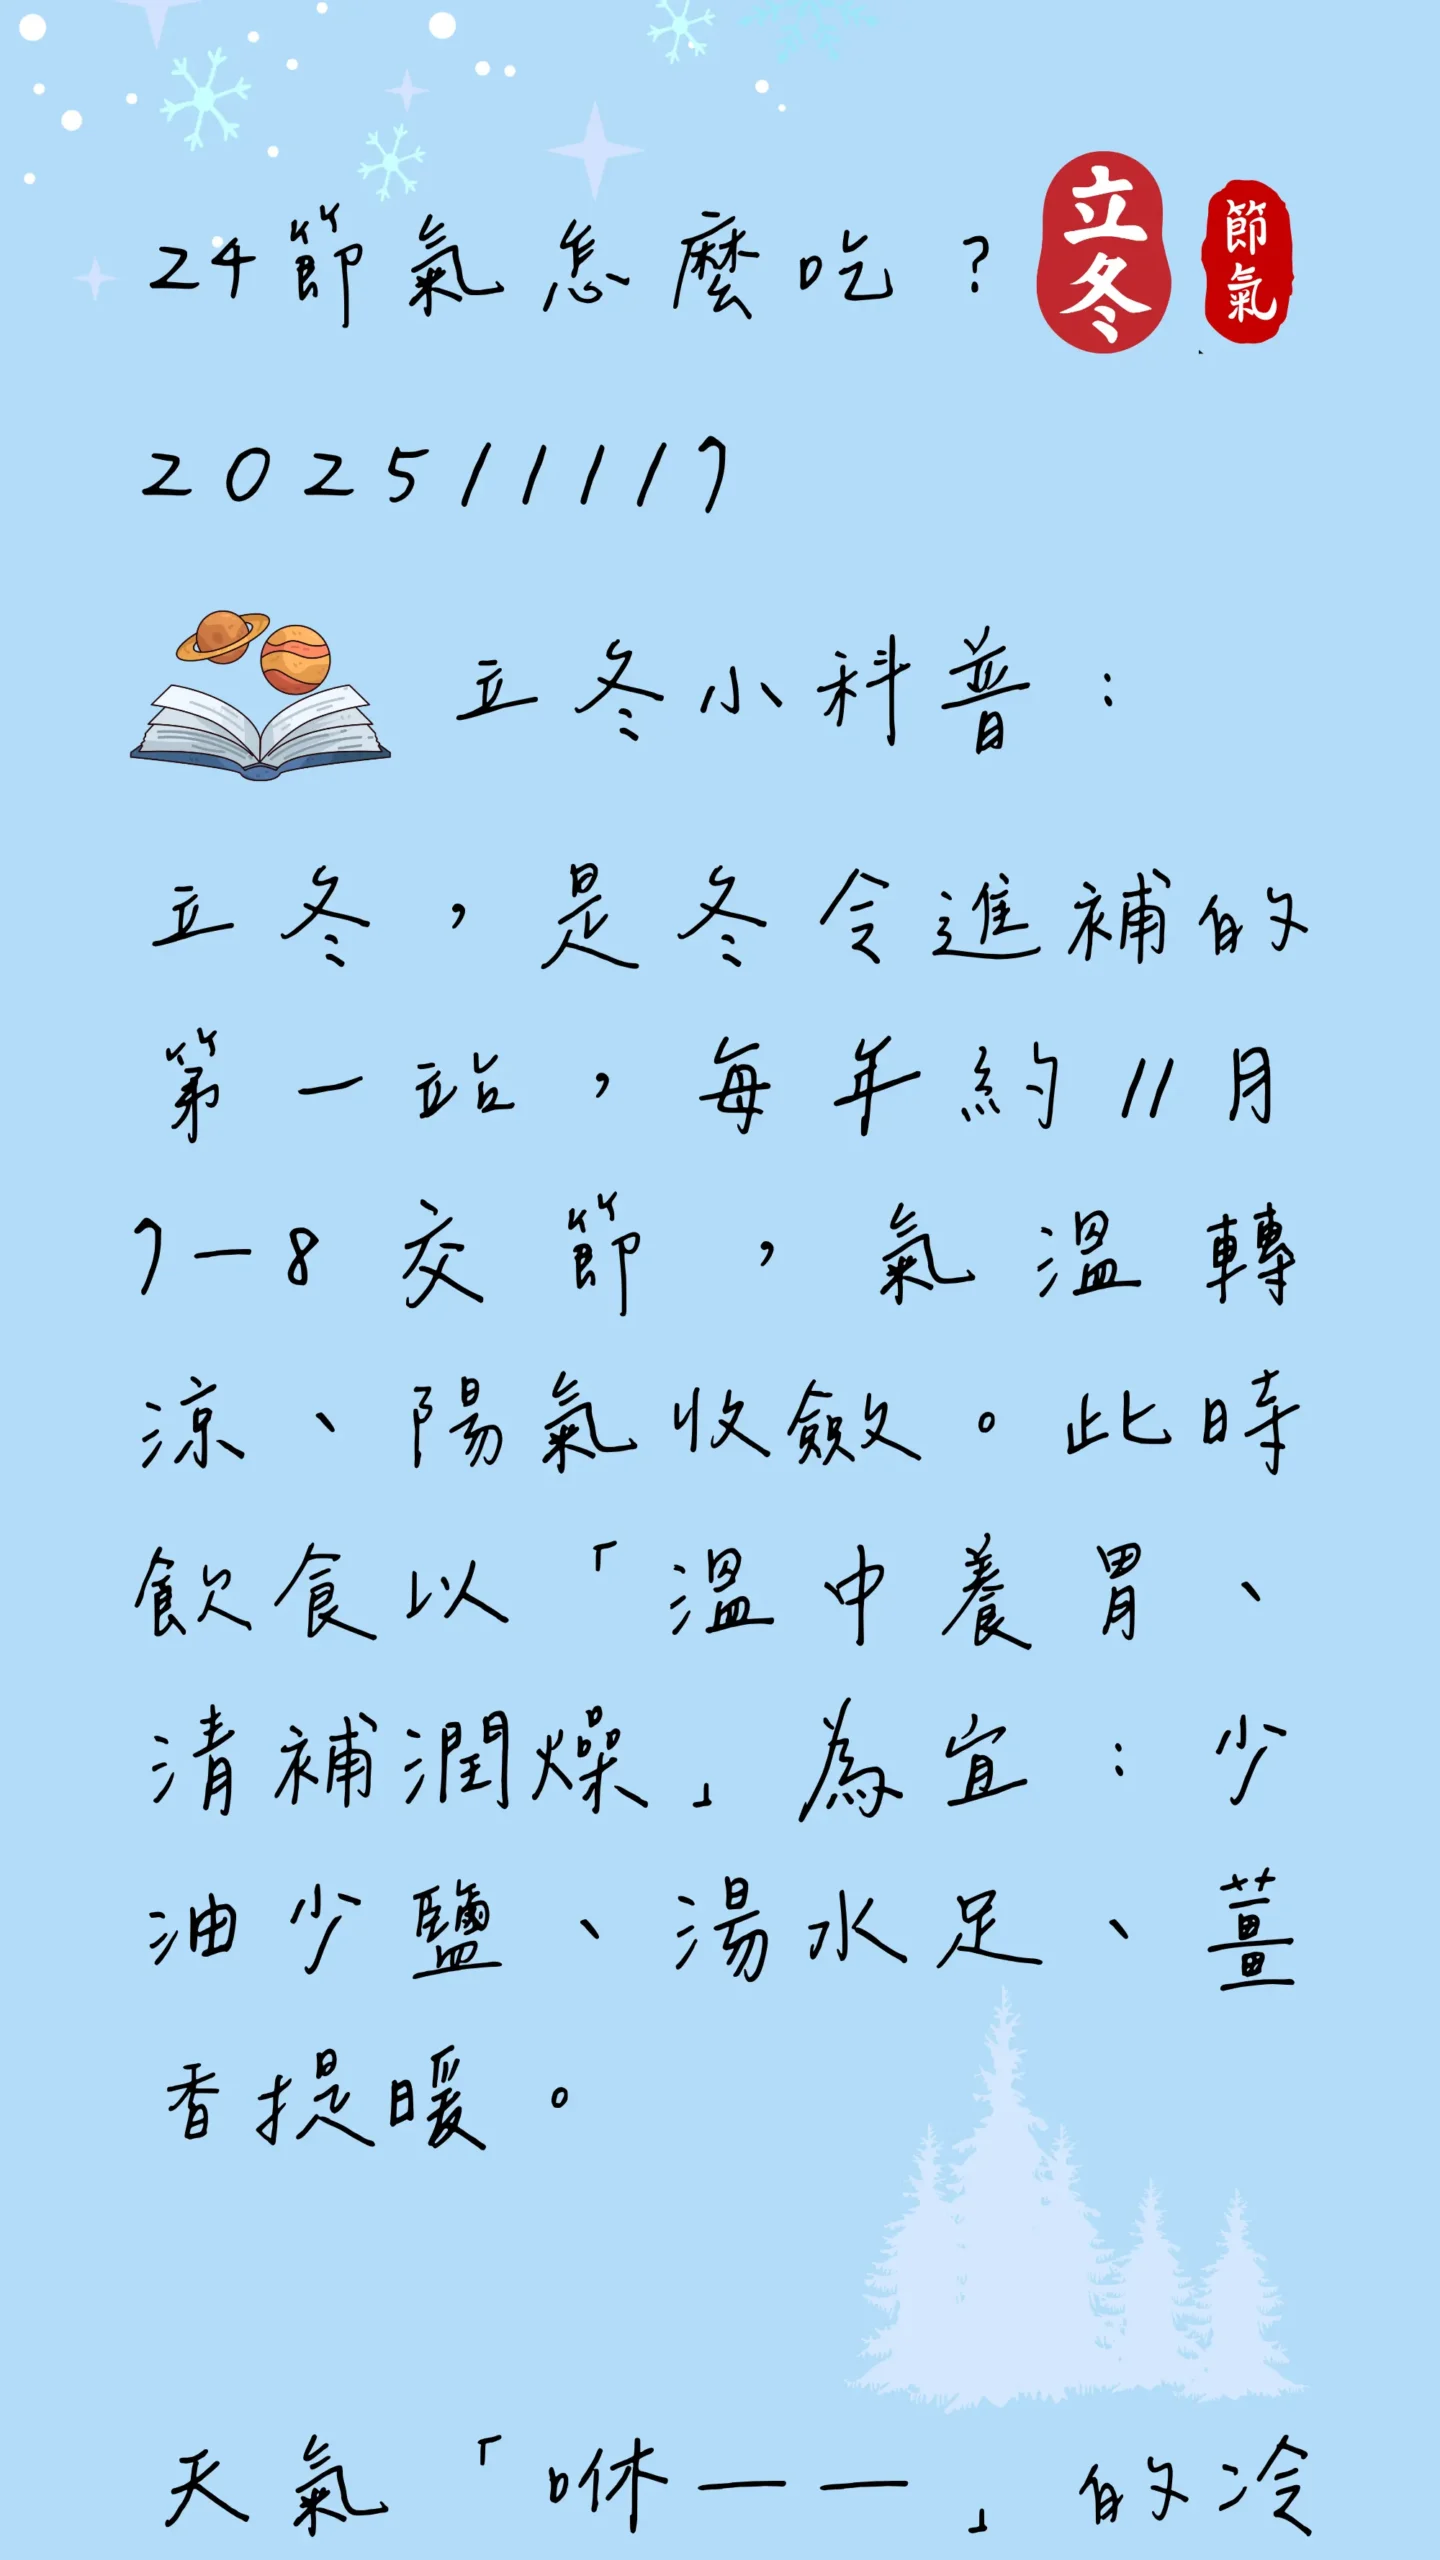 24節氣怎麼吃？
立冬
節氣
2025/11/7
立冬小科普：
立冬，是冬令進補的
第一站，每年約11月
7—8交節，氣溫轉
涼、陽氣收斂。此時
飲食以「溫中養胃、
清補潤燥」為宜：少
油少鹽、湯水足、薑
香提暖。
天氣「咻——」的冷